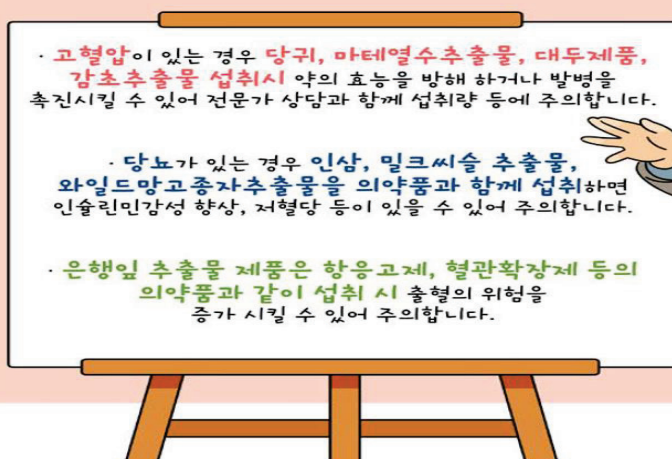 · 고혈압이 있는 경우 당귀, 마테열수추출물, 대두제품,
감초추출물 섭취시 약의 효능을 방해 하거나 발병을
촉진시킬 수 있어 전문가 상담과 함께 섭취량 등에 주의합니다.
· 당뇨가 있는 경우 인삼, 밀크씨슬 추출물,
와일드망고종자추출물을 의약품과 함께 섭취하면
인슐린민감성 향상, 저혈당 등이 있을 수 있어 주의합니다.
· 은행잎 추출물 제품은 항응고제, 혈관확장제 등의
의약품과 같이 섭취 시 출혈의 위험을
증가 시킬 수 있어 주의합니다.